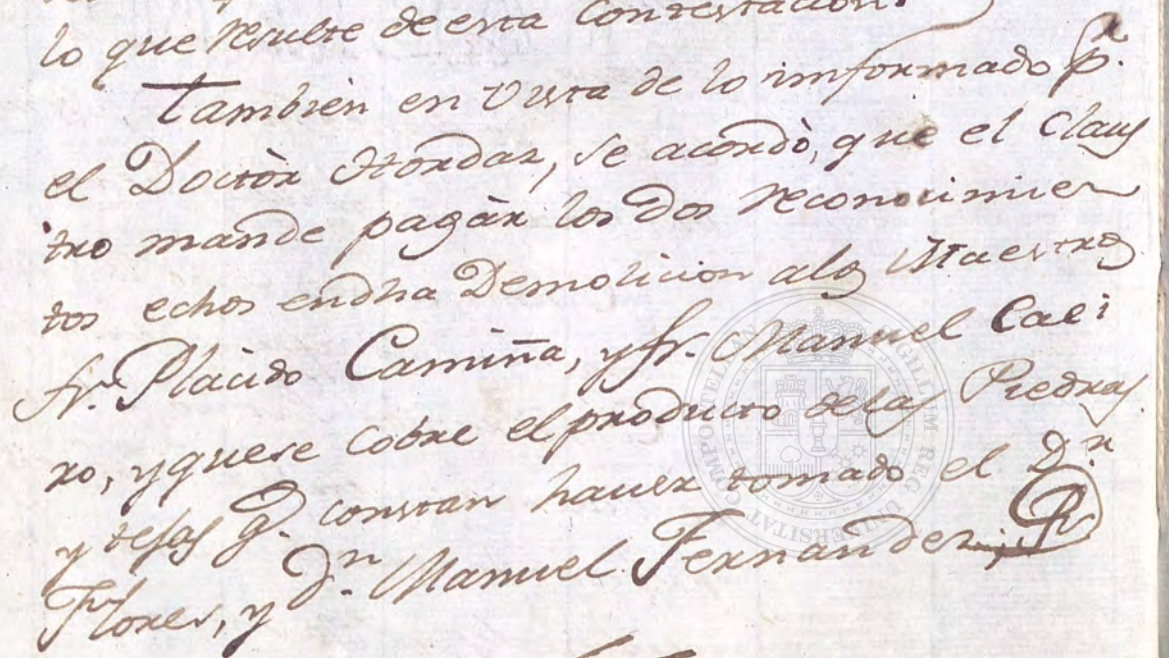 lo que resulte de esta Contestacion.
Tambien en Vista de lo informado p.r
el Doctòr Hordaz, se acordò, que el Claus
tro mande pagàr los dos reconocimien
tos echos en dha Demolicion a los Maestros
fr. Placido Camiña, y fr. Manuel Caei
ro, y que se cobre el producto de las Piedras
y tejas q. constan haver tomado el D.r
Flores, y D.n Manuel Fernandez